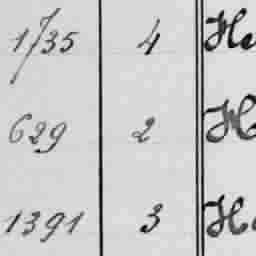 1735 4 He
629 2 H
1391 3 Ha